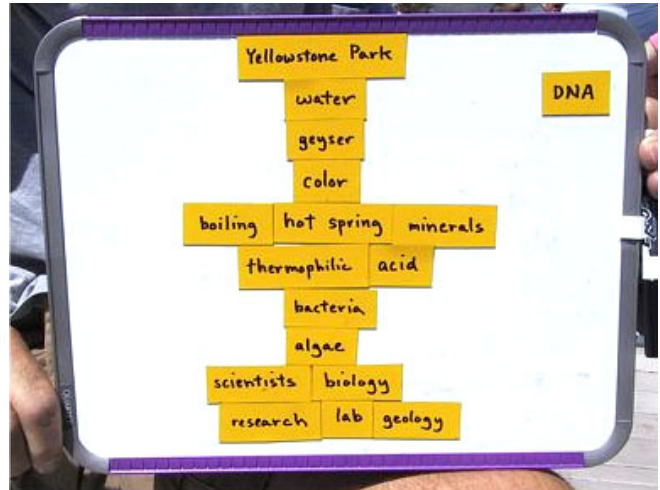 Yellowstone Park
water
DNA
geyser
color
boiling hot spring minerals
thermophilic acid
bacteria
algae
scientists biology
research lab geology